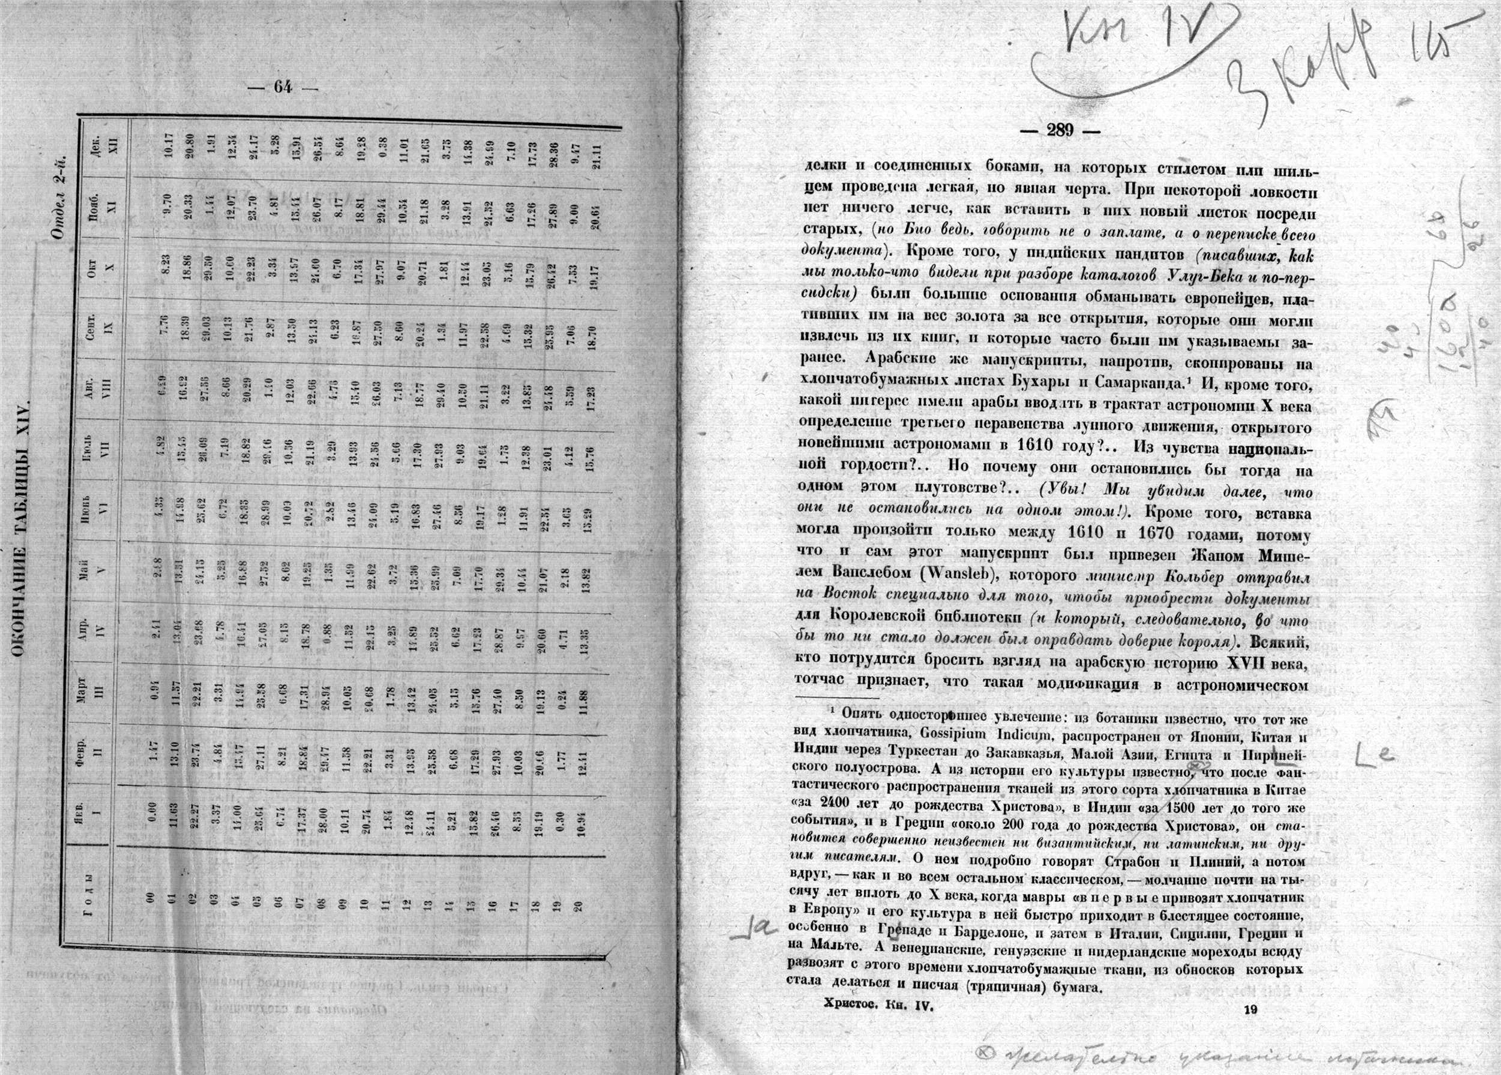 — 64 —
ОКОНЧАНИЕ ТАБЛИЦЫ XIV.
Отдел 2-й.
Годы Янв. I Февр. II Март III Апр. IV Май V Июнь VI Июль VII Авг. VIII Сент. IX Окт X Нояб. XI Дек. XII
00 0.00 1.47 0.94 2.41 4.33 4.82 7.76 8.23 9.70 10.17
01 11.63 13.10 11.57 15.45 18.39 18.86 20.33 20.80
02 22.27 23.74 22.21 23.62 26.09 29.03 1.44 1.91
03 3.37 4.84 3.31 4.78 5.25 6.72 7.19 8.66 10.13 10.60 12.07 12.54
04 14.00 15.47 14.94 16.41 16.88 18.35 18.82 20.29 21.76 22.23 23.70 24.17
05 25.64 27.11 27.05 27.52 28.99 2.87 3.34 4.81 5.28
06 6.74 8.21 6.68 8.15 8.62 10.09 10.36 12.03 13.50 13.97 15.44 15.91
07 17.37 18.84 17.31 18.78 19.25 20.72 21.19 22.66 24.13 24.60 26.07 26.54
08 28.00 29.47 28.94 0.88 1.35 2.82 3.29 4.76 6.23 6.70 8.17 8.64
09 10.11 11.58 10.05 11.52 11.99 13.46 13.93 15.40 16.87 17.34 18.81 19.28
10 20.74 22.21 20.68 22.15 22.62 24.09 24.56 26.03 27.50 27.97 29.44 0.38
11 1.84 3.31 1.78 3.25 3.72 5.19 5.66 7.13 8.60 9.07 10.54 11.01
12 12.48 13.95 13.42 15.36 16.83 17.30 18.77 20.24 20.71 21.18 21.65
13 24.11 25.58 24.05 25.52 25.99 27.46 27.93 29.40 1.34 1.81 3.28 3.75
14 5.21 6.68 5.15 6.62 7.09 8.56 9.03 10.50 11.97 12.44 13.91 14.38
15 15.82 17.29 15.76 17.23 17.70 19.17 19.64 21.11 22.58 23.05 24.52 24.99
16 26.46 27.93 27.40 28.87 29.34 1.28 1.75 3.22 4.69 5.16 6.63 7.10
17 8.55 10.03 8.50 9.97 10.44 11.91 12.38 13.85 15.32 15.79 17.26 17.73
18 19.19 20.66 19.13 20.60 21.07 22.54 23.01 24.48 25.95 26.42 27.89 28.36
19 0.30 1.77 0.24 4.71 2.18 3.65 4.12 5.59 7.06 7.53 9.00 9.47
20 10.94 12.41 11.88 13.35 13.82 15.29 15.76 17.23 18.70 19.17 20.64 21.11
Кн IV
3 корр 115
— 289 —
делки и соединенных боками, на которых стилетом или шиль-
цем проведена легкая, но явная черта. При некоторой ловкости
нет ничего легче, как вставить в них новый листок посреди
старых, (но Био ведь, говорить не о заплате, а о переписке всего
документа). Кроме того, у индийских пандитов (писавших, как
мы только-что видели при разборе каталогов Улуг-Бека и по-пер-
сидски) были большие основания обманывать европейцев, пла-
тивших им на вес золота за все открытия, которые они могли
извлечь из их книг, и которые часто были им указываемы за-
ранее. Арабские же манускрипты, напротив, скопированы на
хлопчатобумажных листах Бухары и Самарканда.¹ И, кроме того,
какой интерес имели арабы вводить в трактат астрономии X века
определение третьего неравенства лунного движения, открытого
новейшими астрономами в 1610 году?.. Из чувства националь-
ной гордости?.. Но почему они остановились бы тогда на
одном этом плутовстве?.. (Увы! Мы увидим далее, что
они не остановились на одном этом!). Кроме того, вставка
могла произойти только между 1610 и 1670 годами, потому
что и сам этот манускрипт был привезен Жаном Мише-
лем Ванслебом (Wansleb), которого министр Кольбер отправил
на Восток специально для того, чтобы приобрести документы
для Королевской библиотеки (и который, следовательно, во что
бы то ни стало должен был оправдать доверие короля). Всякий,
кто потрудится бросить взгляд на арабскую историю XVII века,
тотчас признает, что такая модификация в астрономическом
¹ Опять одностороннее увлечение: из ботаники известно, что тот же
вид хлопчатника, Gossipium Indicum, распространен от Японии, Китая и
Индии через Туркестан до Закавказья, Малой Азии, Египта и Пириней-
ского полуострова. А из истории его культуры известно, что после фан-
тастического распространения тканей из этого сорта хлопчатника в Китае
«за 2400 лет до рождества Христова», в Индии «за 1500 лет до того же
события», и в Греции «около 200 года до рождества Христова», он ста-
новится совершенно неизвестен ни византийским, ни латинским, ни дру-
гим писателям. О нем подробно говорят Страбон и Плиний, а потом
вдруг, — как и во всем остальном классическом, — молчание почти на ты-
сячу лет вплоть до X века, когда мавры «впервые привозят хлопчатник
в Европу» и его культура в ней быстро приходит в блестящее состояние,
особенно в Гренаде и Барцелоне, и затем в Италии, Сицилии, Греции и
на Мальте. А венецианские, генуэзские и нидерландские мореходы всюду
развозят с этого времени хлопчатобумажные ткани, из обносков которых
стала делаться и писчая (тряпичная) бумага.
Христос. Кн. IV.
19
е
а
желательно указание